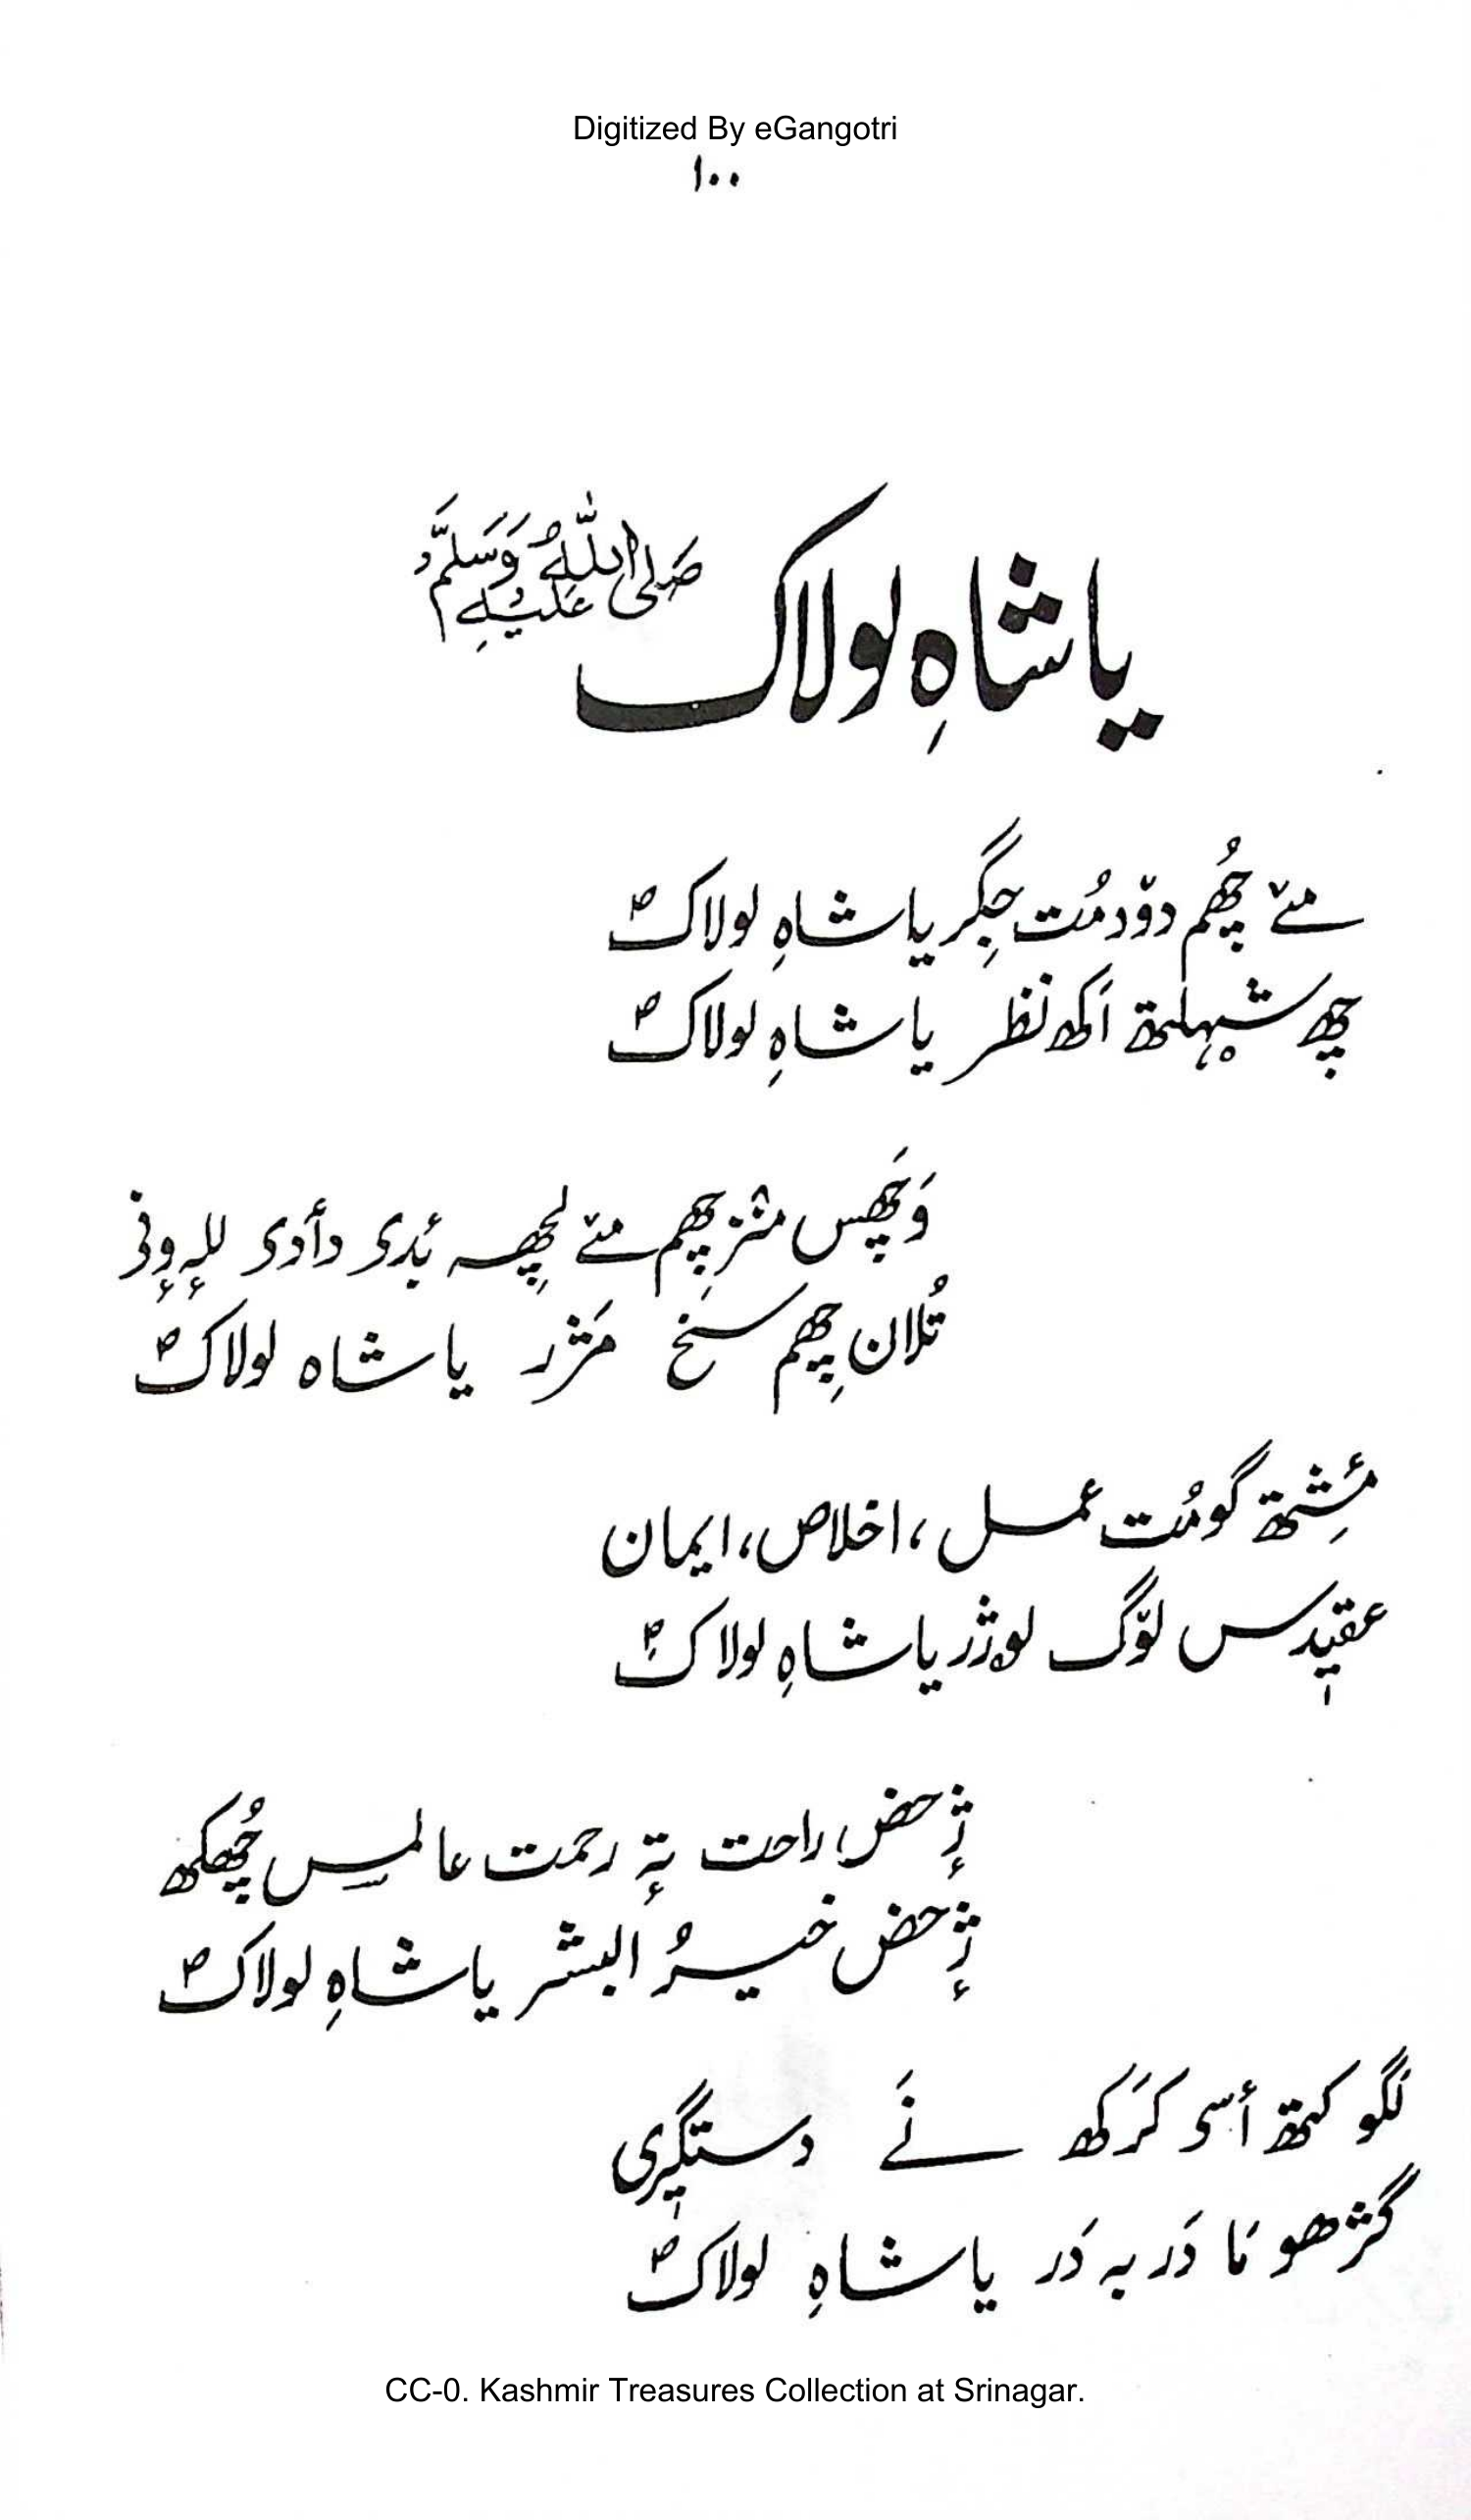 Digitized By eGangotri
۱۰۰
یا شاہِ لولاک صَلی اللہُ عَلَیْہِ وَسَلَّمْ
مےٚ چھُم دوٚدمُت جِگر یا شاہِ لولاکؐ
چھِ شہلیتھ اَکھ نظر یا شاہِ لولاکؐ
وَچھَس منٛز چھِم مےٚ لچھِہ بٔدی دأدی للہٕ وٕنی
تُلان چھِم سَخ مَژر یا شاہ لولاکؐ
مٔشِتھ گومُت عمل، اخلاص، ایمان
عقیٖدس لوٚگ لوٗژر یا شاہِ لولاکؐ
ژٕ حض راحت تہٕ رحمت عالمس چھُکھ
ژٕ حض خیرُ البشر یا شاہِ لولاکؐ
لَگو کتھ أسی کَرَکھ نَے دستگیٖری
گژھو نا دَر بہ دَر یا شاہِ لولاکؐ
CC-0. Kashmir Treasures Collection at Srinagar.